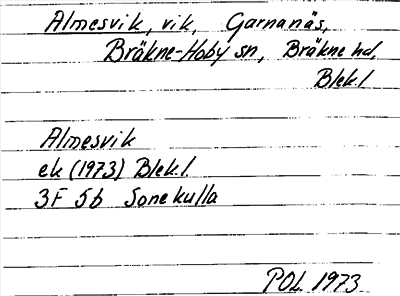 Almesvik, vik, Garnanäs,
Bräkne-Hoby sn, Bräkne hd,
Blek.l
Almesvik
ek (1973) Blek.l.
3F 5b Sonekulla
POL 1973